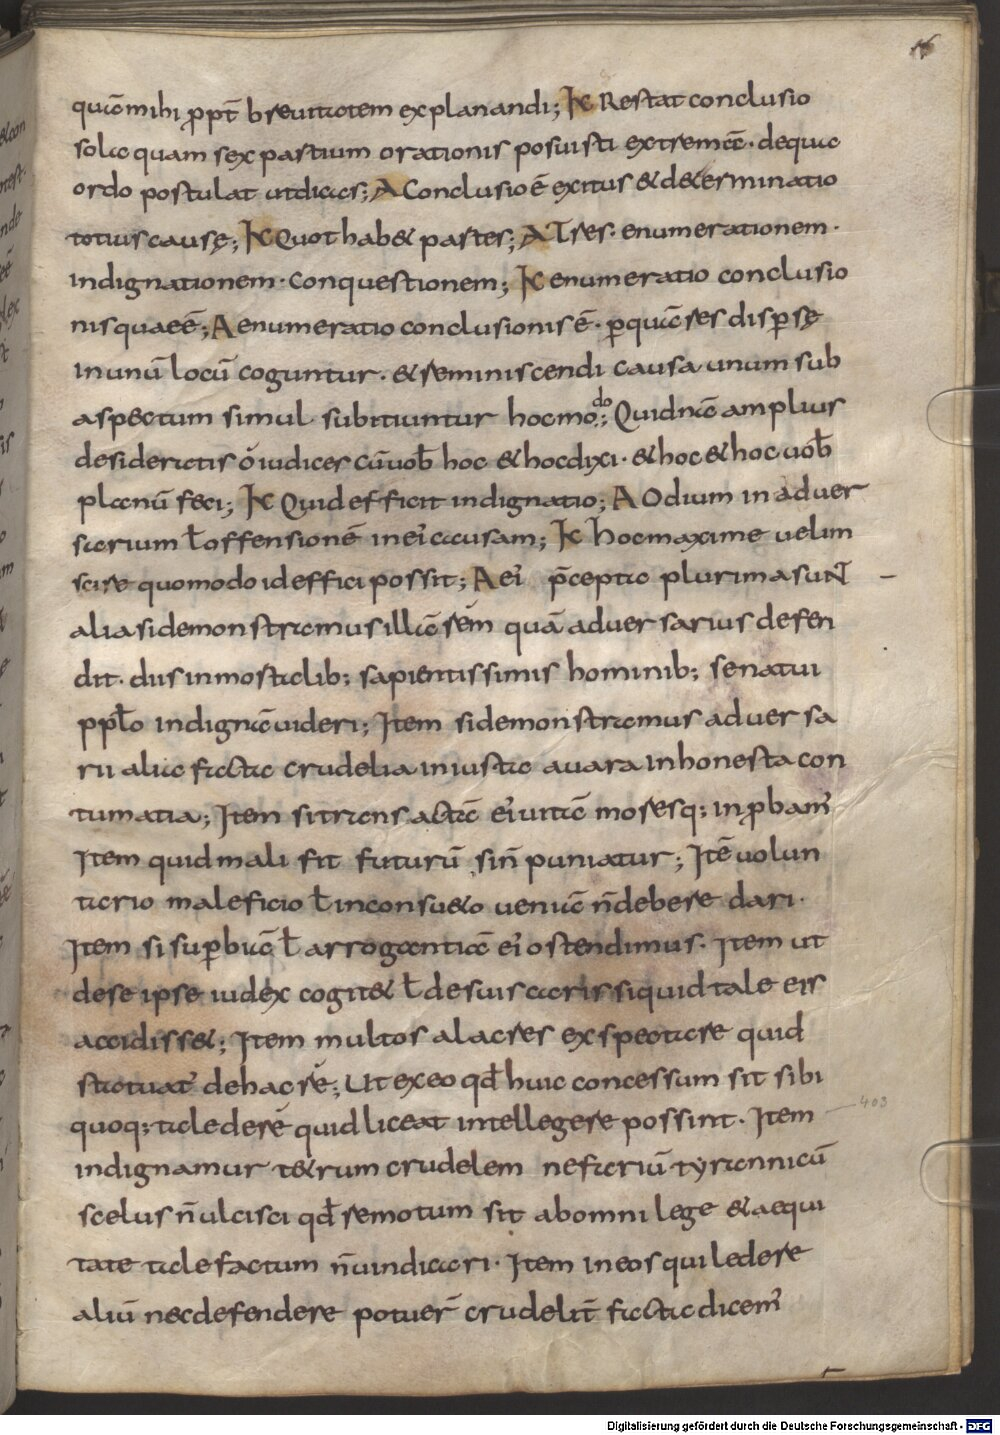 16
quā mihi ꝓpt̄ breuitatem explanandi; K Restat conclusio
sola quam sex partium orationis posuisti extremā· de qua
ordo postulat ut dicas; A Conclusio ē exitus & determinatio
totius causę; K Quot hab& partes; A Tres· enumerationem·
indignationem· conquestionem; K enumeratio conclusio
nis quae ē; A enumeratio conclusionis ē· ꝑ quā res dispersę
in unū locū coguntur· & reminiscendi causa unum sub
aspectum simul subitiuntur hoc modo; Quid nā amplius
desideratis ó iudices cū uob̄ hoc & hoc dixi· & hoc & hoc uob̄
planū feci; K Quid efficit indignatio; A Odium in aduer
sarium ł offensionē in ei' causam; K hoc maxime uelim
scire quomodo id effici possit; A ei' p̄cepta plurima suNT
alia si demonstramus illā rem quā aduersarius defen
dit· diis inmortalib; sapientissimis hominib; senatui
ppło indignā uideri; Item si demonstramus aduersa
rii alia facta crudelia iniusta auara inhonesta con
tumatia; Item si transactā ei' uitā moresq; inꝓbam'
Item quid mali fit futurū, si n̄ puniatur; Itē uolun
tario maleficio ł inconsu&o ueniā n̄ debere dari·
Item si suꝑbiā ł arrogantiā ei' ostendimus· Item ut
de se ipse iudex cogit& ł de suis caris si quid tale eis
accidiss&; Item multos alacres exspectare quid
statuat' de hac re; Ut ex eo qđ huic concessum sit sibi
quoq; de tale re quid liceat intellegere possint· Item
403
indignamur t&rum crudelem nefariū tyrannicū
scelus n̄ ulcisci qđ remotum sit ab omni lege & aequi
tate tale factum n̄ uindicari· Item in eos qui ledere
aliū nec defendere potuer̄ crudelit̄ facta dicem'
Digitalisierung gefördert durch die Deutsche Forschungsgemeinschaft - DFG